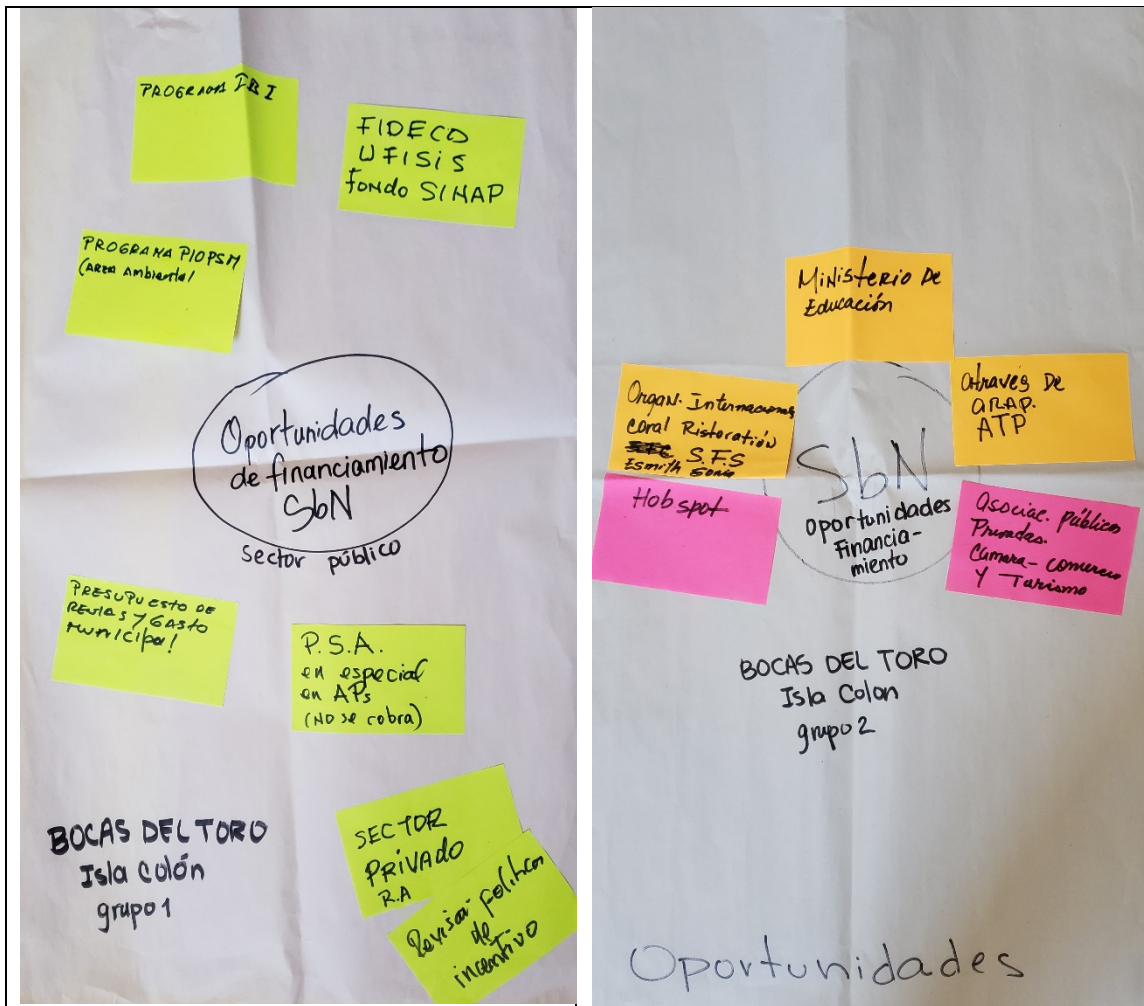 PROGRAMA IBI
FIDECO
UFISIS
Fondo SINAP
PROGRAMA PIOPSM
(Area Ambiental
Oportunidades
de financiamiento
SbN
sector público
PRESUPUESTO DE
RENTAS Y GASTO
Municipal
P.S.A.
en especial
en APs
(No se cobra)
SECTOR
PRIVADO
R.A
Revisar políticas
de
incentivo
BOCAS DEL TORO
Isla Colón
grupo 1
Ministerio De
Educación
Organ. Internacional
Coral Ristoratión
S.F.S
Esmith
através De
ARAP.
ATP
Hobspot
SbN
Oportunidades
Financia-
miento
Asociac. públicos
Privadas.
Cámara-comercio
Y Turismo
BOCAS DEL TORO
Isla Colon
grupo 2
Oportunidades